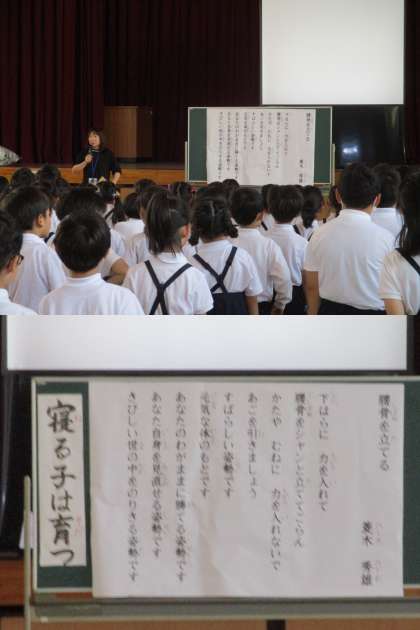 腰骨を立てる
菱木 秀雄
下はらに 力を入れて
腰骨をシャンと立ててごらん
かたや むねに 力を入れないで
あごを引きましょう
すばらしい姿勢です
元気な体のもとです
あなたのわがままに勝てる姿勢です
あなた自身を見直せる姿勢です
きびしい世の中をのりきる姿勢です
寝る子は育つ